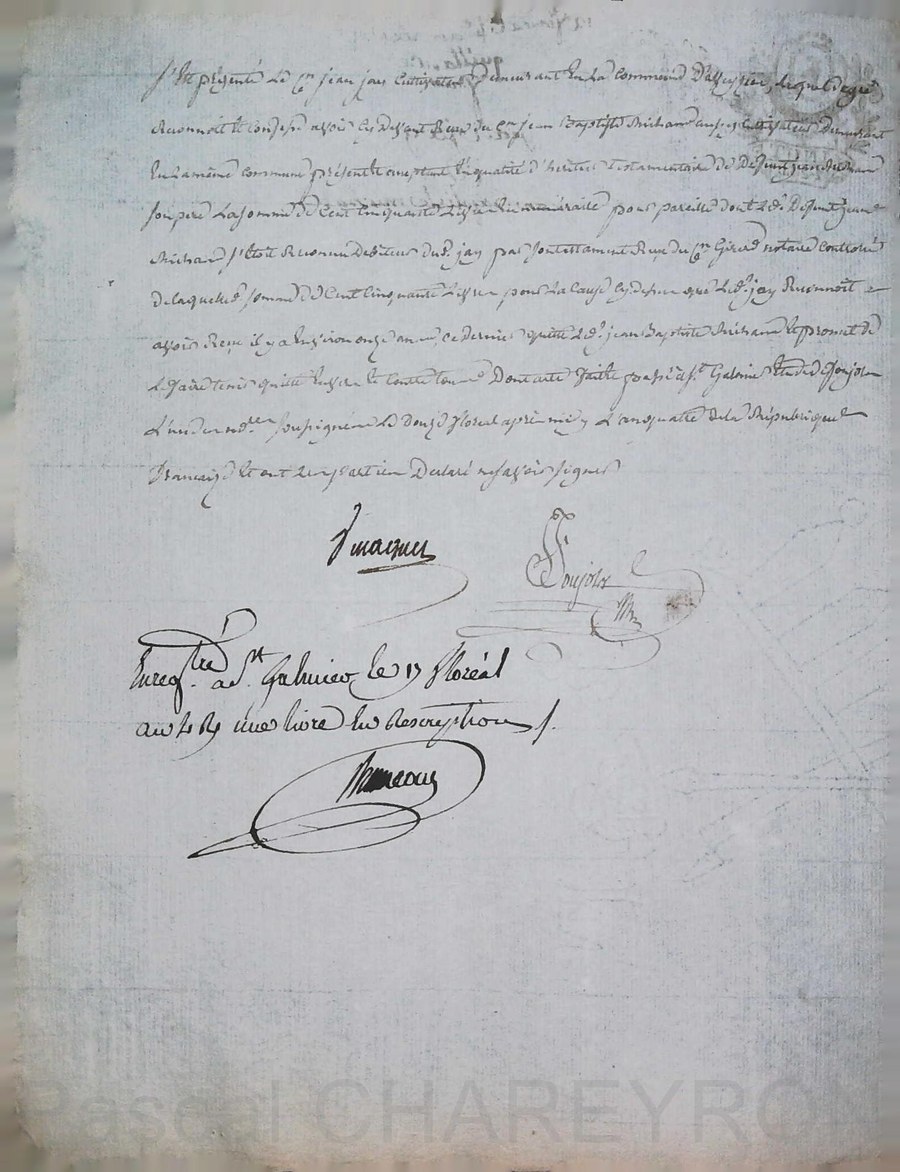 S'est présenté le Cen jean jay Cultivateur demeurant en la Commune d'aveyzieu, lequel de gré
Reconnoit et Confesse avoir cy devant Reçu du Cen jean Baptiste Michaud aussy Cultivateur demeurant
En la même Commune présent et acceptant En qualité d'heritier testamentaire de Défunt jean Michaud
Son père La somme de Cent Cinquante Livres En numéraire pour pareille dont led. Défunt jean
Michaud s'étoit Reconnu Debiteur dud. jay par son testament Reçu du Cen Girard notaire Controlé
de laquelle somme de Cent Cinquante Livres pour La Cause cy dessus que led. jay Reconnoit
avoir Reçu il y a Environ onze ans, ce dernier quitte led. jean Baptiste Michaud et promet de
Le faire tenir quitte Envers et Contre tous Dont acte fait et passé à St. Galmier Etude de Soujoln
L'un des nres Soussignés Le douze floreal après midy L'an quatre de la République
française Et ont les parties Declaré ne savoir signer
Soujoln
Nre
Enregtré a St. Galmier, le 17 floréal
an 4 R une livre En Rescription